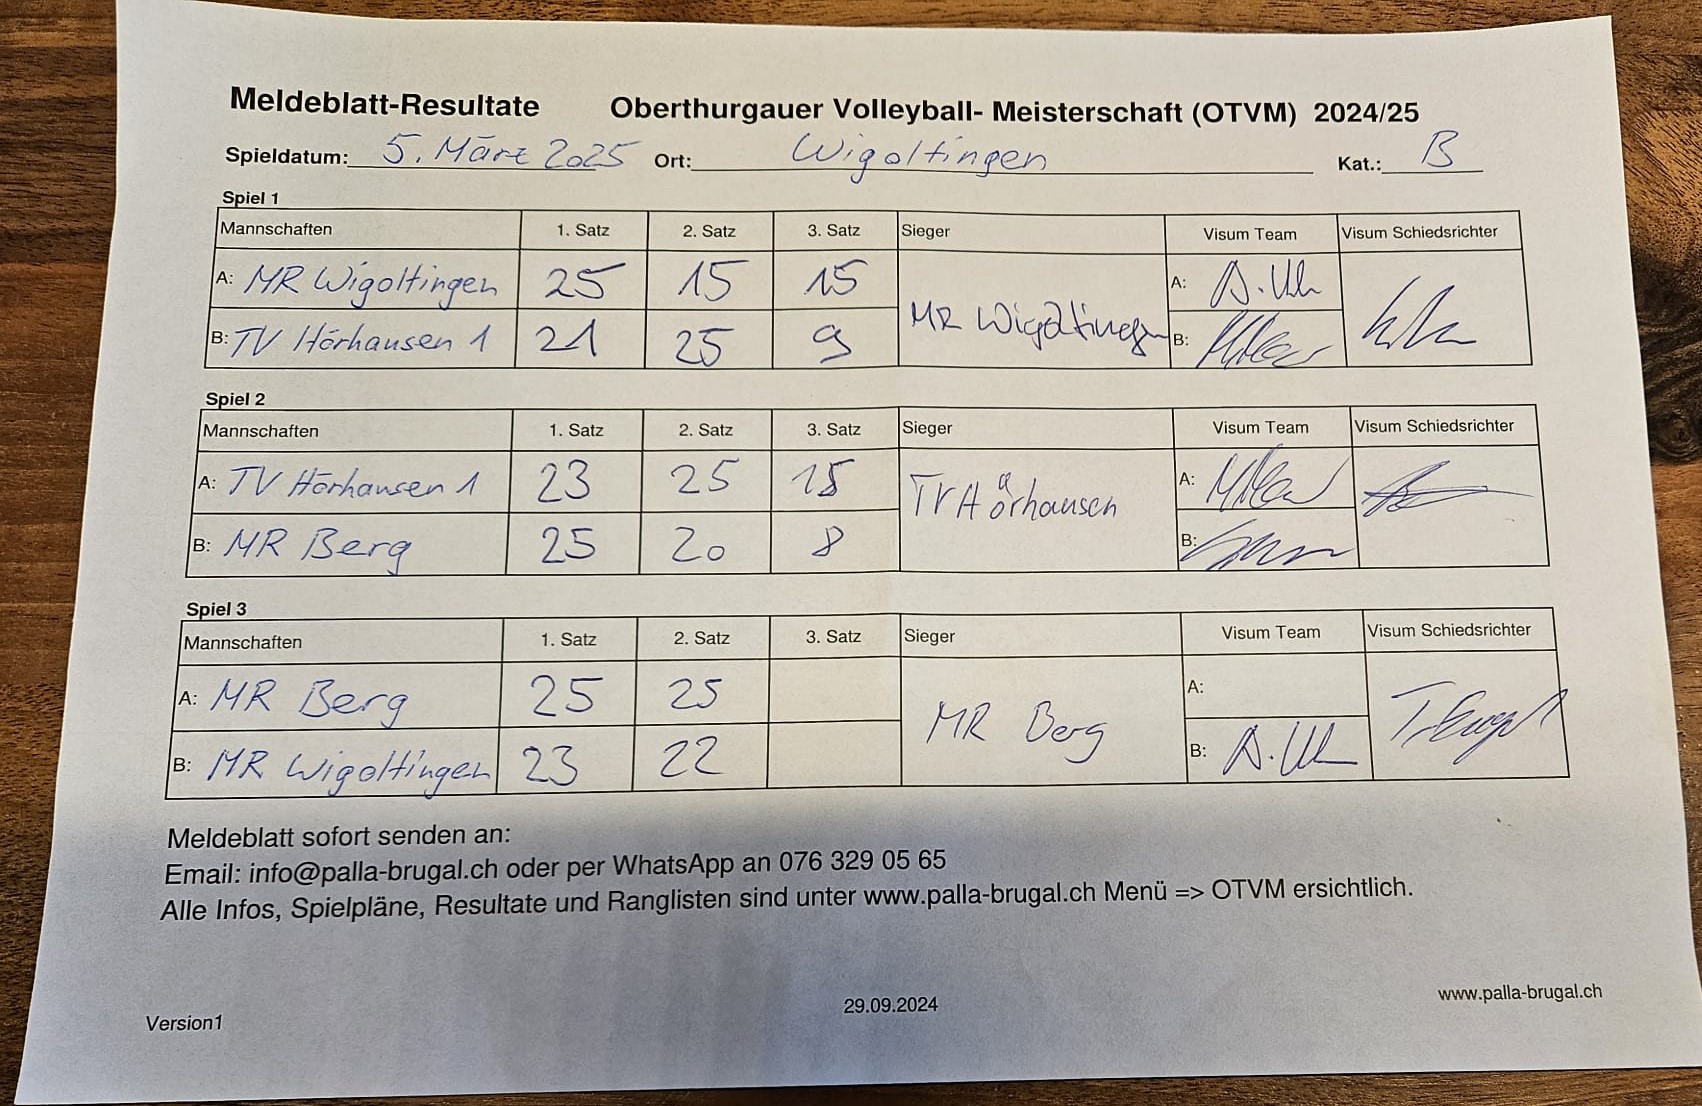 Meldeblatt-Resultate Oberthurgauer Volleyball- Meisterschaft (OTVM) 2024/25
Spieldatum: 5. März 2025 Ort: Wigoltingen Kat.: B
Spiel 1
Mannschaften 1. Satz 2. Satz 3. Satz Sieger Visum Team Visum Schiedsrichter
A: MR Wigoltingen 25 15 15 MR Wigoltingen A:
B: TV Hörhausen 1 21 25 9 B:
Spiel 2
Mannschaften 1. Satz 2. Satz 3. Satz Sieger Visum Team Visum Schiedsrichter
A: TV Hörhausen 1 23 25 15 TV Hörhausen A:
B: MR Berg 25 20 8 B:
Spiel 3
Mannschaften 1. Satz 2. Satz 3. Satz Sieger Visum Team Visum Schiedsrichter
A: MR Berg 25 25 MR Berg A:
B: MR Wigoltingen 23 22 B:
Meldeblatt sofort senden an:
Email: info@palla-brugal.ch oder per WhatsApp an 076 329 05 65
Alle Infos, Spielpläne, Resultate und Ranglisten sind unter www.palla-brugal.ch Menü => OTVM ersichtlich.
Version1 29.09.2024 www.palla-brugal.ch